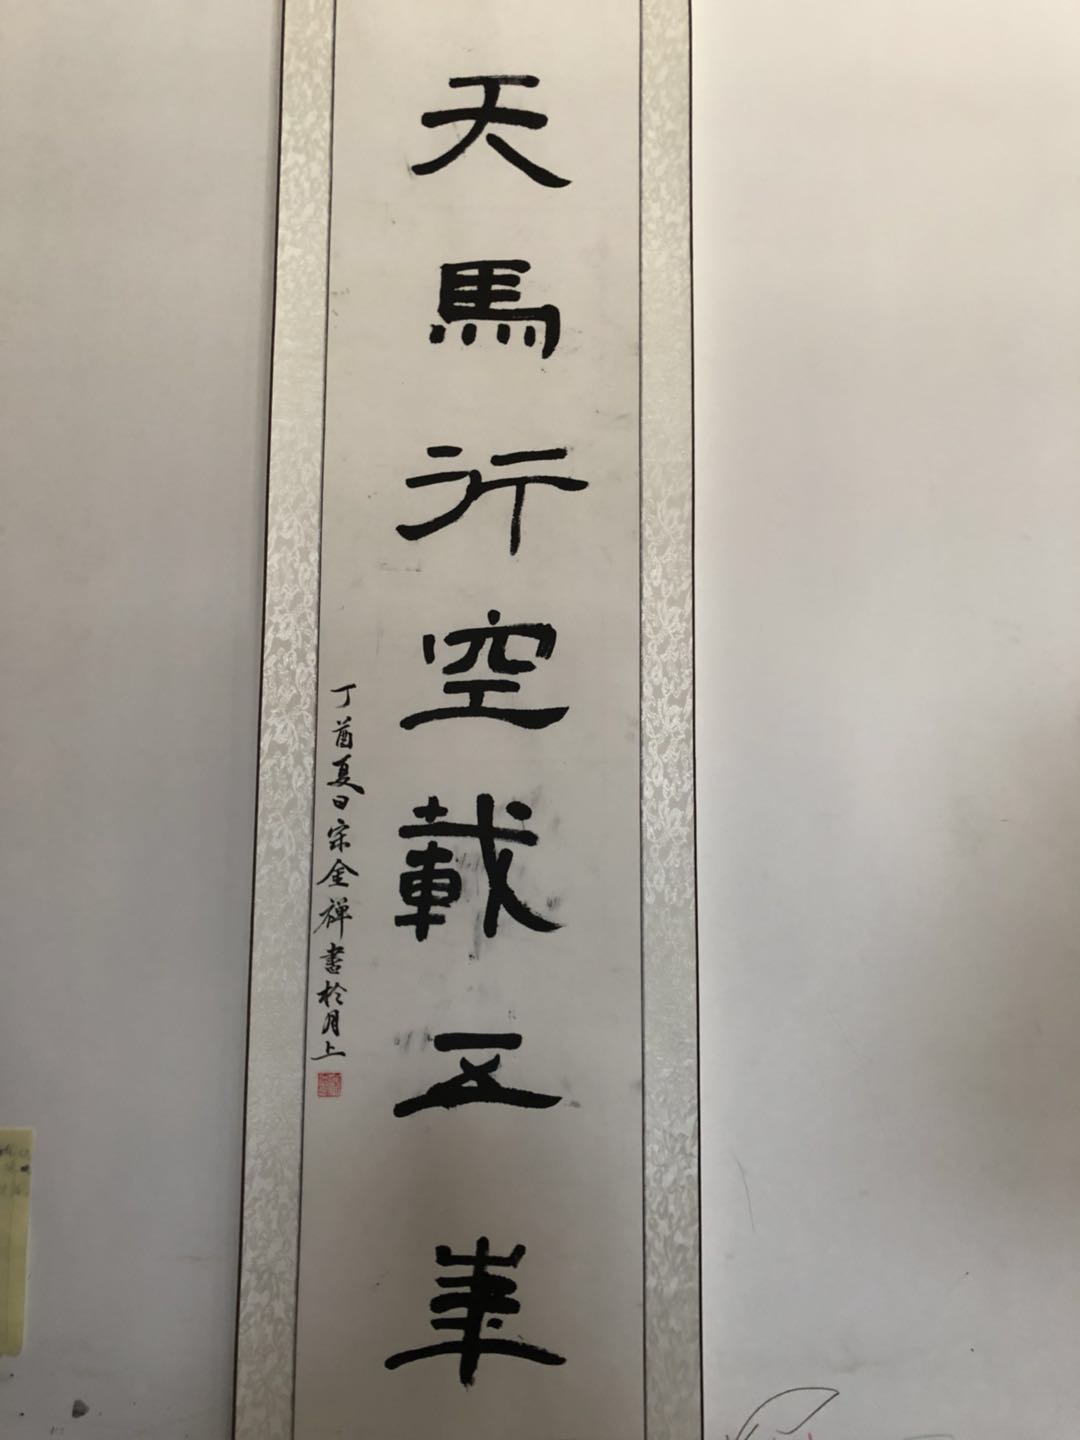 天馬行空載五車
丁酉夏日宗金禅書於月上